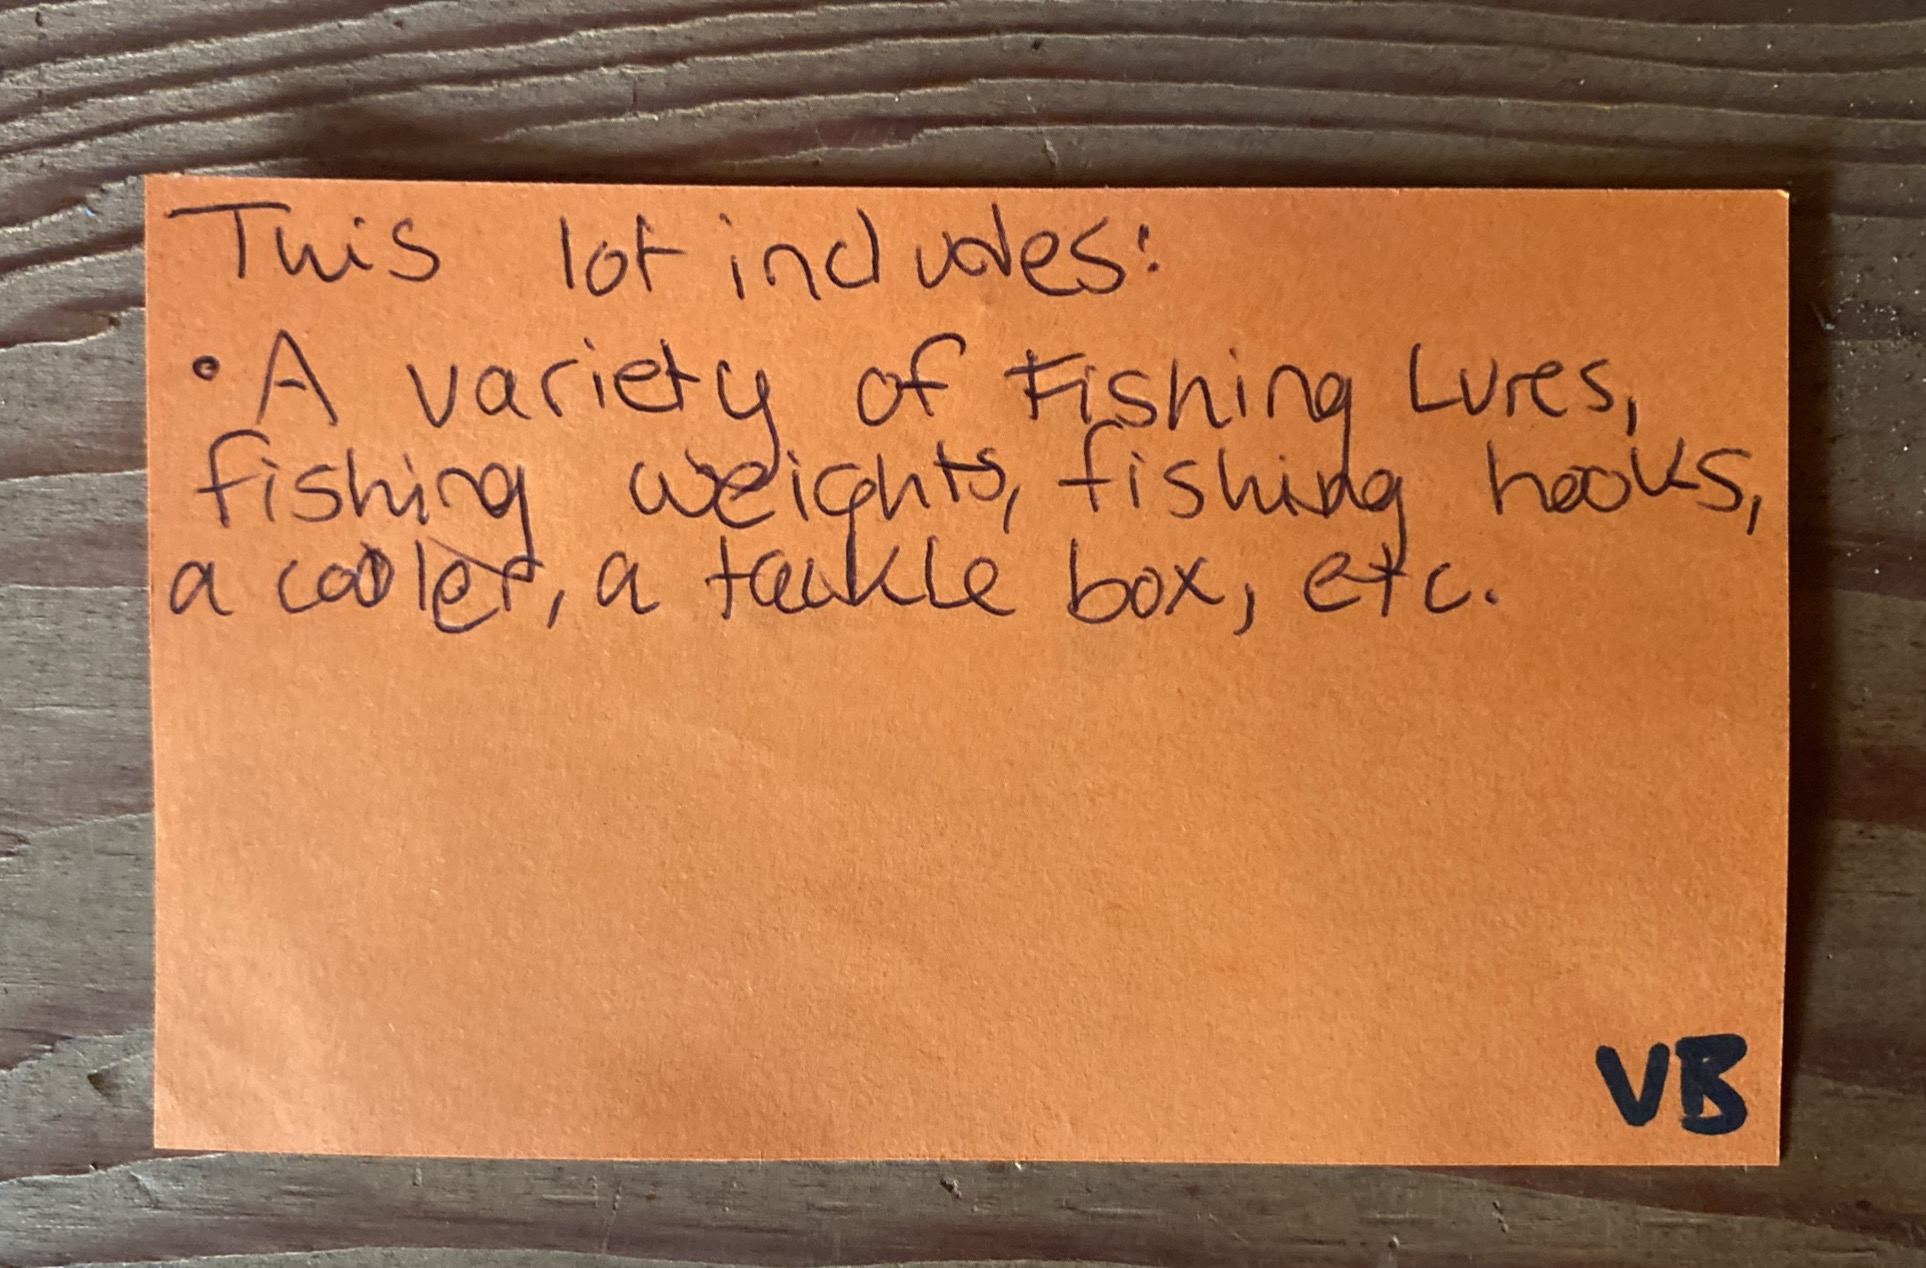 This lot includes:
• A variety of Fishing Lures,
fishing weights, fishing hooks,
a cooler, a tackle box, etc.
VB